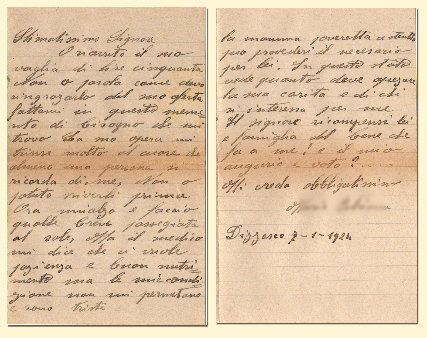 Stimatissimo Signore
Ricevuto il suo
vaglia di lire cinquanta
Non o parole come devo
ringraziarlo del suo oferta
fattami in questo momen
to di bisogno che mi
trovo. La sua opera mi
molto al cuore che
almeno una persona si
ricorda di, me, Non o
potuto riverli prima
Ora mialzo e facio
qualche breve passegiata
al sole, Ma il medico
mi dice che ci vuole
pazienza e buon nutri
mento ma le mie condi
zione non mi permetano
e sono tristi
la mamma poveretta a stento
puo provederi il necesario
per lei. In questo stato
vede quanto deve aprezare
la sua carita e di chi
si interessa per me
Il signore ricompensi lei
e famiglia del bene che
fa a me! e il mio
augurio e voto?..
Mi creda obbligatissimo
Dizzasco 7-1-1924